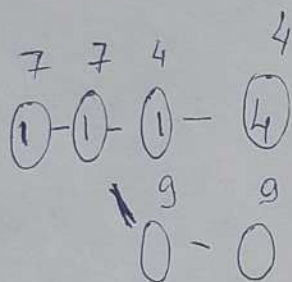 7 7 4 4
1 - 1 - 1 - 4
9 9
-